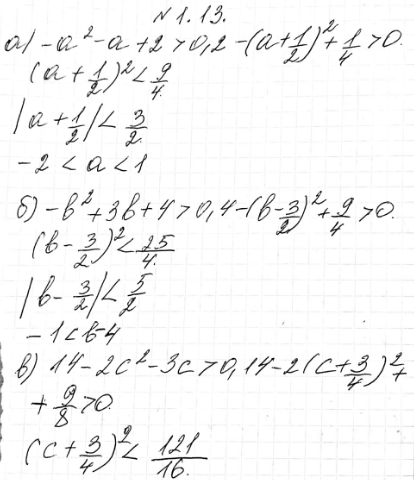 №1.13.
а) -a² - a + 2 > 0, 2 - (a + 1/2)² + 1/4 > 0.
(a + 1/2)² < 9/4.
|a + 1/2| < 3/2.
-2 < a < 1
б) -b² + 3b + 4 > 0, 4 - (b - 3/2)² + 9/4 > 0.
(b - 3/2)² < 25/4.
|b - 3/2| < 5/2
-1 < b - 4
в) 14 - 2c² - 3c > 0, 14 - 2(c + 3/4)² +
+ 9/8 > 0.
(c + 3/4)² < 121/16.